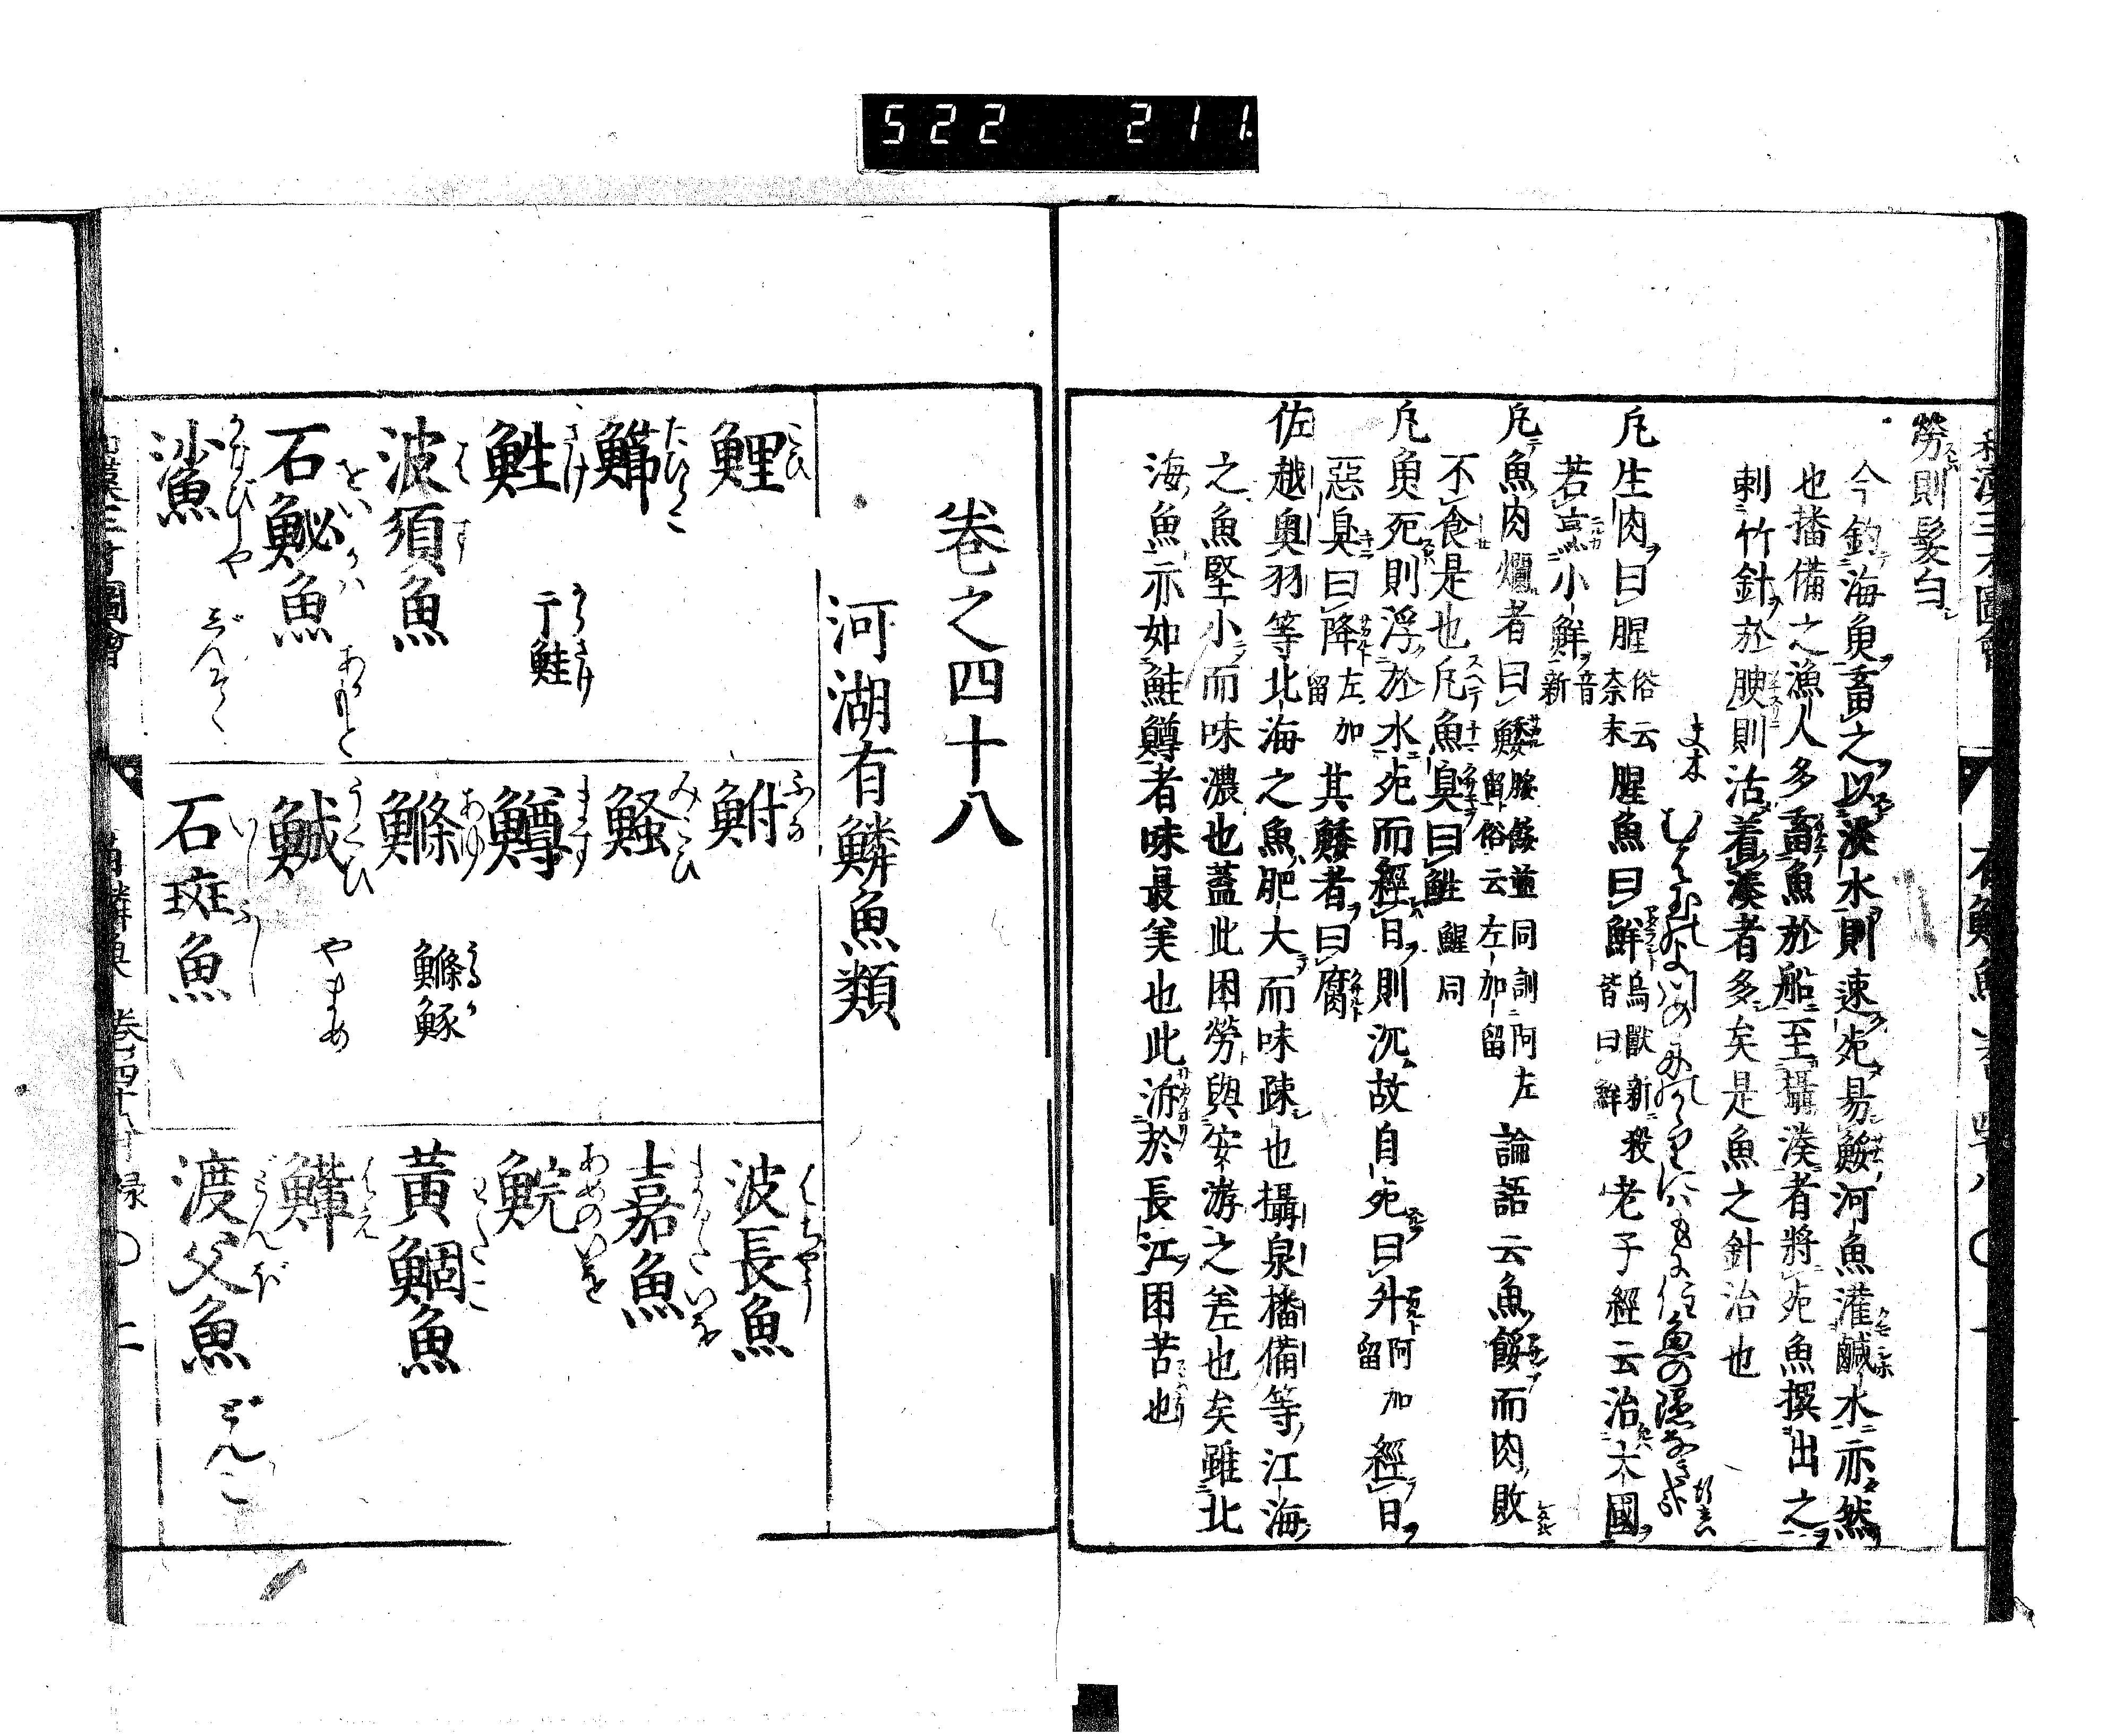 522 211
勞則髮白
今釣海魚畜之以淡水則速死易鮾河魚灌鹹水亦然
也播備之漁人多畜魚於船至攝湊者將死魚撰出之
刺竹針於腴則活着湊者多矣是魚之針治也
凡生肉曰腥俗云奈末腥魚曰鮮鳥獸新殺皆曰鮮老子經云治大國
若烹小鮮音新
凡魚肉爛者曰鮾鮾餒並同訓阿左留俗云左加留論語云魚餒而肉敗
不食是也凡魚臭曰鮏鯹同
凡魚死則浮於水死而經日則沉故自死曰外阿加留經日
惡臭曰降左加留其鮾者曰腐
佐越奥羽等北海之魚肥大而味疎也攝泉播備等江海
之魚堅小而味濃也蓋此困勞與安游之差也矣雖北
海魚亦如鮭鱒者味最美也此泝於長江困苦也
卷之四十八
河湖有鱗魚類
鯉 こひ
鯽 ふな
波長魚 はちやう
鰤 たひらこ
鰠 みごひ
嘉魚 まるたいを
鮏 さけ
干鮭 からさけ
鱒 ます
鯇 あめのいを
波須魚 はす
鰷 あゆ
鰷鮧 うるか
黃鯝魚 わたこ
石鮅魚 をいかハ
あかもと
鯎 うぐひ
やまめ
鰱 はえ
鯊 かはびしや
じんぞく
石斑魚 いしぶし
渡父魚 どんぼ
どんこ